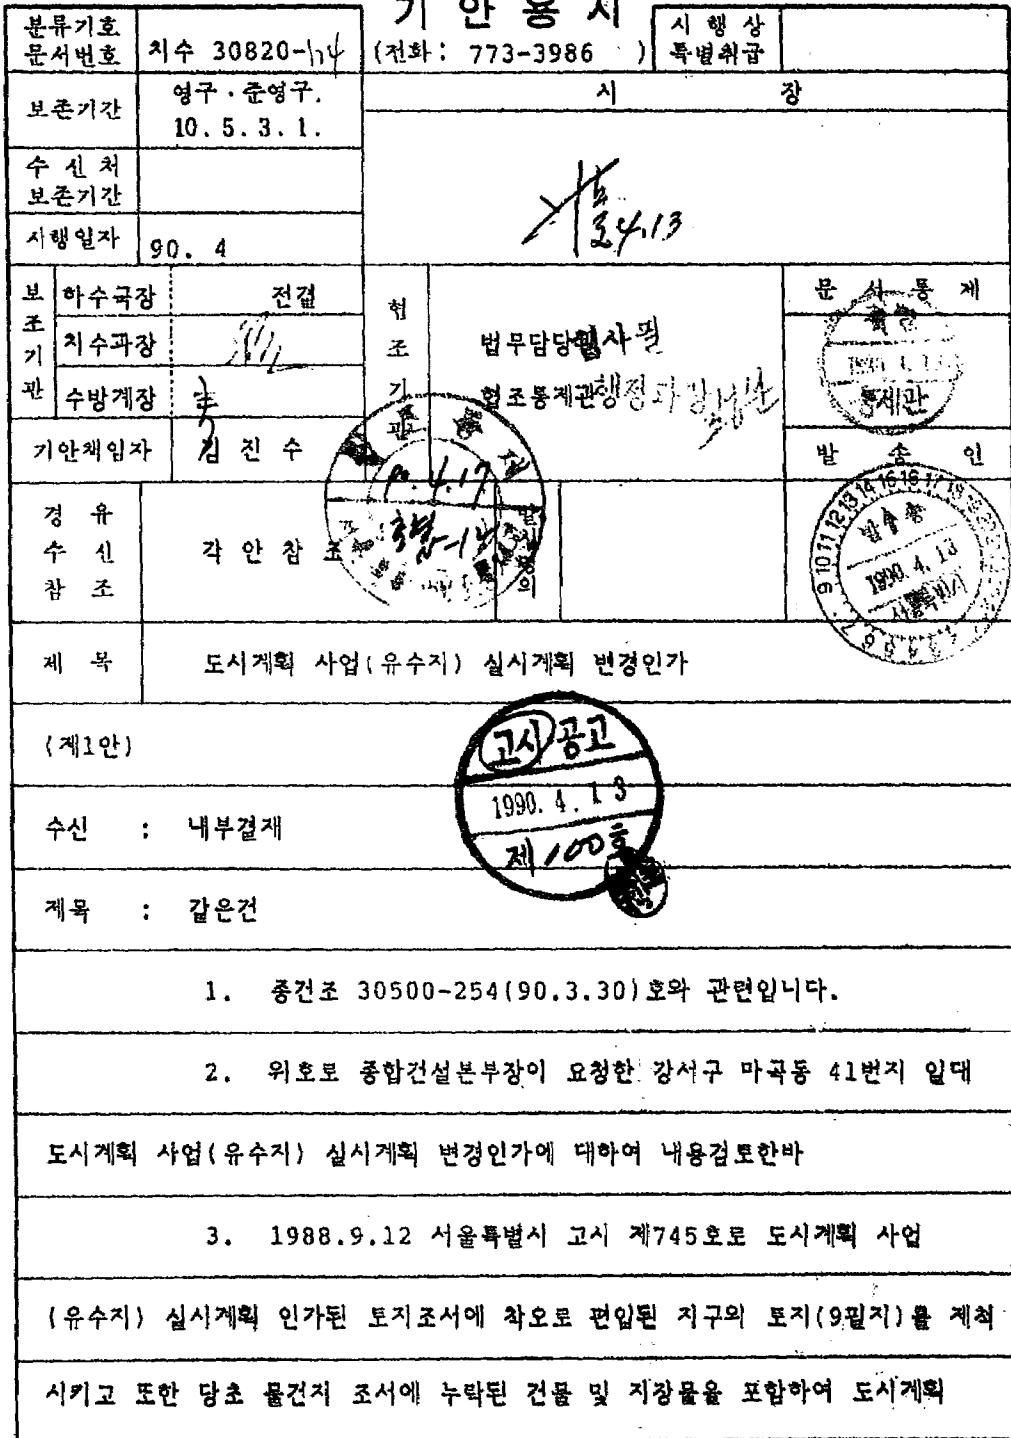 기 안 용 지
분류기호
문서번호
치수 30820-124
(전화: 773-3986 )
시 행 상
특별취급
보존기간
영구 · 준영구.
10. 5. 3. 1.
시 장
수 신 처
보존기간
시행일자
90. 4
4.13
보조기관
하수국장
전결
치수과장
수방계장
기안책임자
김 진 수
협조기관
법무담당
협조통제관
문 서 통 제
통제관
발 송 인
9 10 11 12 13 14 15 16 17 18
발송
1990. 4. 13
서울특별시
90.4.17
경 유
수 신
참 조
각 안 참 조
제 목
도시계획 사업(유수지) 실시계획 변경인가
(제1안)
고시 공고
1990. 4. 1 3
제 100호
수신 : 내부결재
제목 : 같은건
1. 종건조 30500-254(90.3.30)호와 관련입니다.
2. 위호로 종합건설본부장이 요청한 강서구 마곡동 41번지 일대
도시계획 사업(유수지) 실시계획 변경인가에 대하여 내용검토한바
3. 1988.9.12 서울특별시 고시 제745호로 도시계획 사업
(유수지) 실시계획 인가된 토지조서에 착오로 편입된 지구외 토지(9필지)를 제척
시키고 또한 당초 물건지 조서에 누락된 건물 및 지장물을 포함하여 도시계획